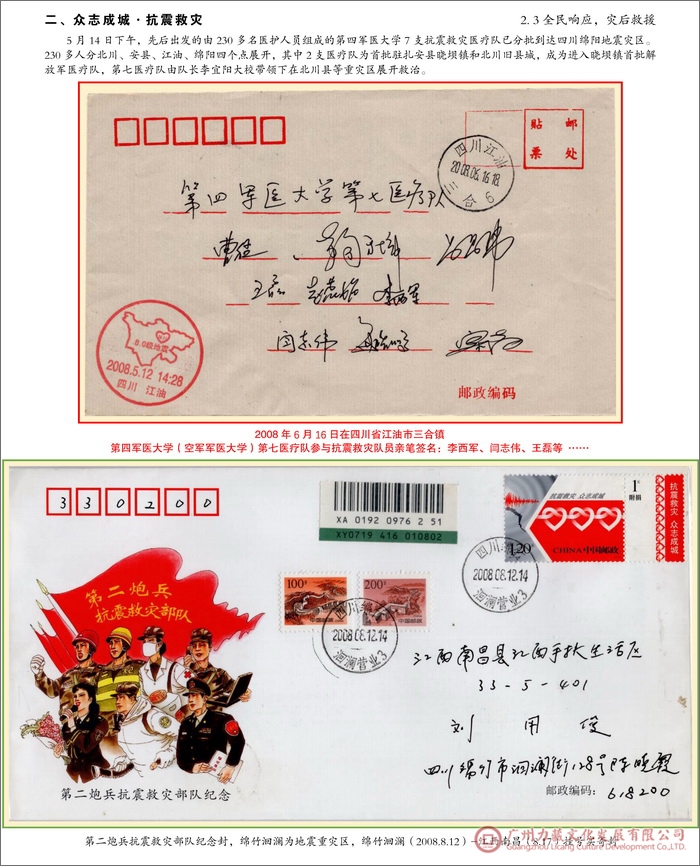 二、众志成城·抗震救灾
2.3 全民响应，灾后救援
5月14日下午，先后出发的由230多名医护人员组成的第四军医大学7支抗震救灾医疗队已分批到达四川绵阳地震灾区。
230多人分北川、安县、江油、绵阳四个点展开，其中2支医疗队为首批驻扎安县晓坝镇和北川旧县城，成为进入晓坝镇首批解
放军医疗队，第七医疗队由队长李宜阳大校带领下在北川县等重灾区展开救治。
贴邮
票处
四川江油
2008.06.16.18
三合 6
第四军医大学第七医疗队
曹佳
王磊
李西军
闫志伟
8.0级地震
2008.5.12 14:28
四川 江油
邮政编码
2008年6月16日在四川省江油市三合镇
第四军医大学（空军军医大学）第七医疗队参与抗震救灾队员亲笔签名：李西军、闫志伟、王磊等 ……
330200
XA 0192 0976 2 51
XY0719 416 010802
抗震救灾 众志成城
1
附捐
120
CHINA 中国邮政
抗震救灾 众志成城
四川绵竹
2008.08.12.14
洄澜营业3
100
中国邮政
200
中国邮政
四川绵竹
2008.08.12.14
洄澜营业3
第二炮兵
抗震救灾部队
江西南昌县江西手扶生活区
33-5-401
刘用俊
四川绵竹市洄澜街128号陈晓霞
邮政编码：618200
第二炮兵抗震救灾部队纪念
第二炮兵抗震救灾部队纪念封，绵竹洄澜为地震重灾区，绵竹洄澜（2008.8.12）-江西南昌（8.17）挂号实寄封
广州力荐文化发展有限公司
Guangzhou Licang Culture Development Co., Ltd